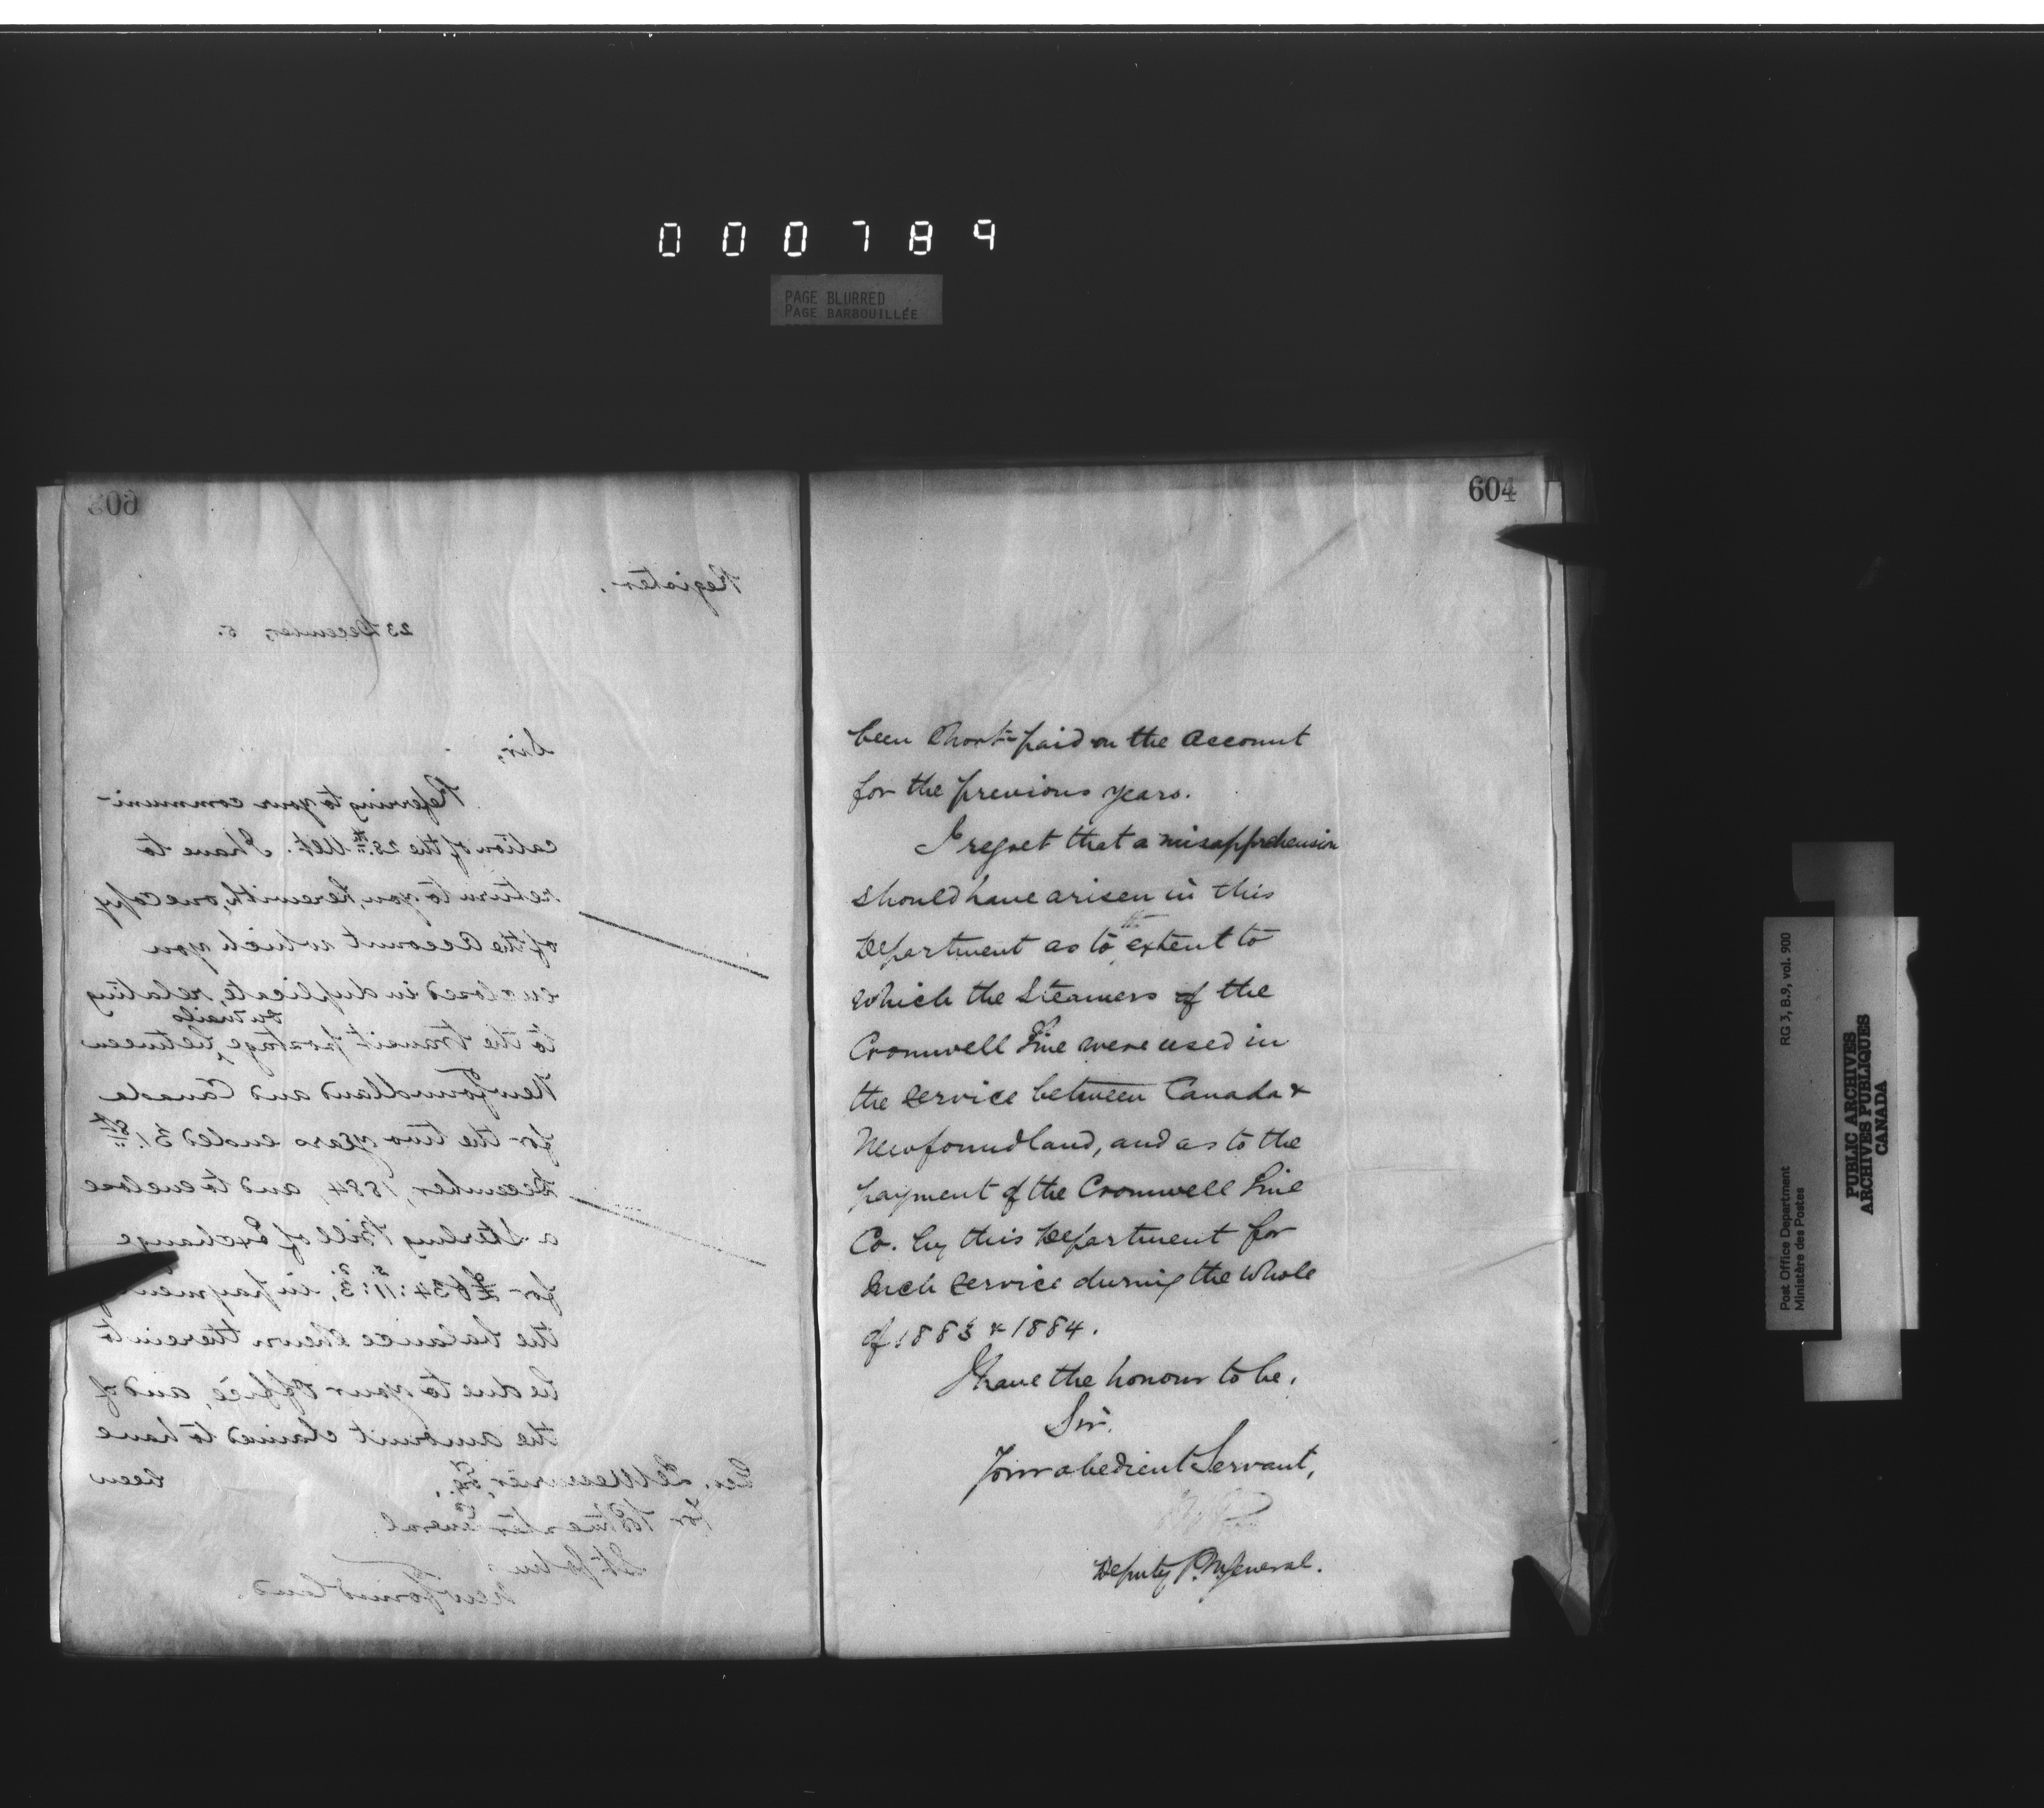 0 0 0 7 8 9
PAGE BLURRED
PAGE BARBOUILLÉE
603
Register.
23 December, 5.
Sir,
Referring to your communi-
cation of the 28th Ult. I have to
return to you, herewith, one copy
of the Account which you
enclosed in duplicate, relating
on mails
to the transit postage, between
Newfoundland and Canada
for the two years ended 31st
December, 1884, and to enclose
a Sterling Bill of Exchange
for £634:11:3, in payment
the balance shewn therein to
be due to your Office, and of
the amount claimed to have
been
Geo. LeMessurier, Esq.,
for Postmaster General,
St. John's
Newfoundland.
604
been short-paid on the Account
for the previous years.
I regret that a misapprehension
should have arisen in this
the
Department as to extent to
which the Steamers of the
Cromwell Line were used in
the service between Canada &
Newfoundland, and as to the
payment of the Cromwell Line
Co. by this Department for
such service during the whole
of 1883 & 1884.
I have the honour to be,
Sir,
Your obedient Servant,
Deputy P.M. General.
RG 3, B.9, vol. 900
Post Office Department
Ministère des Postes
PUBLIC ARCHIVES
ARCHIVES PUBLIQUES
CANADA